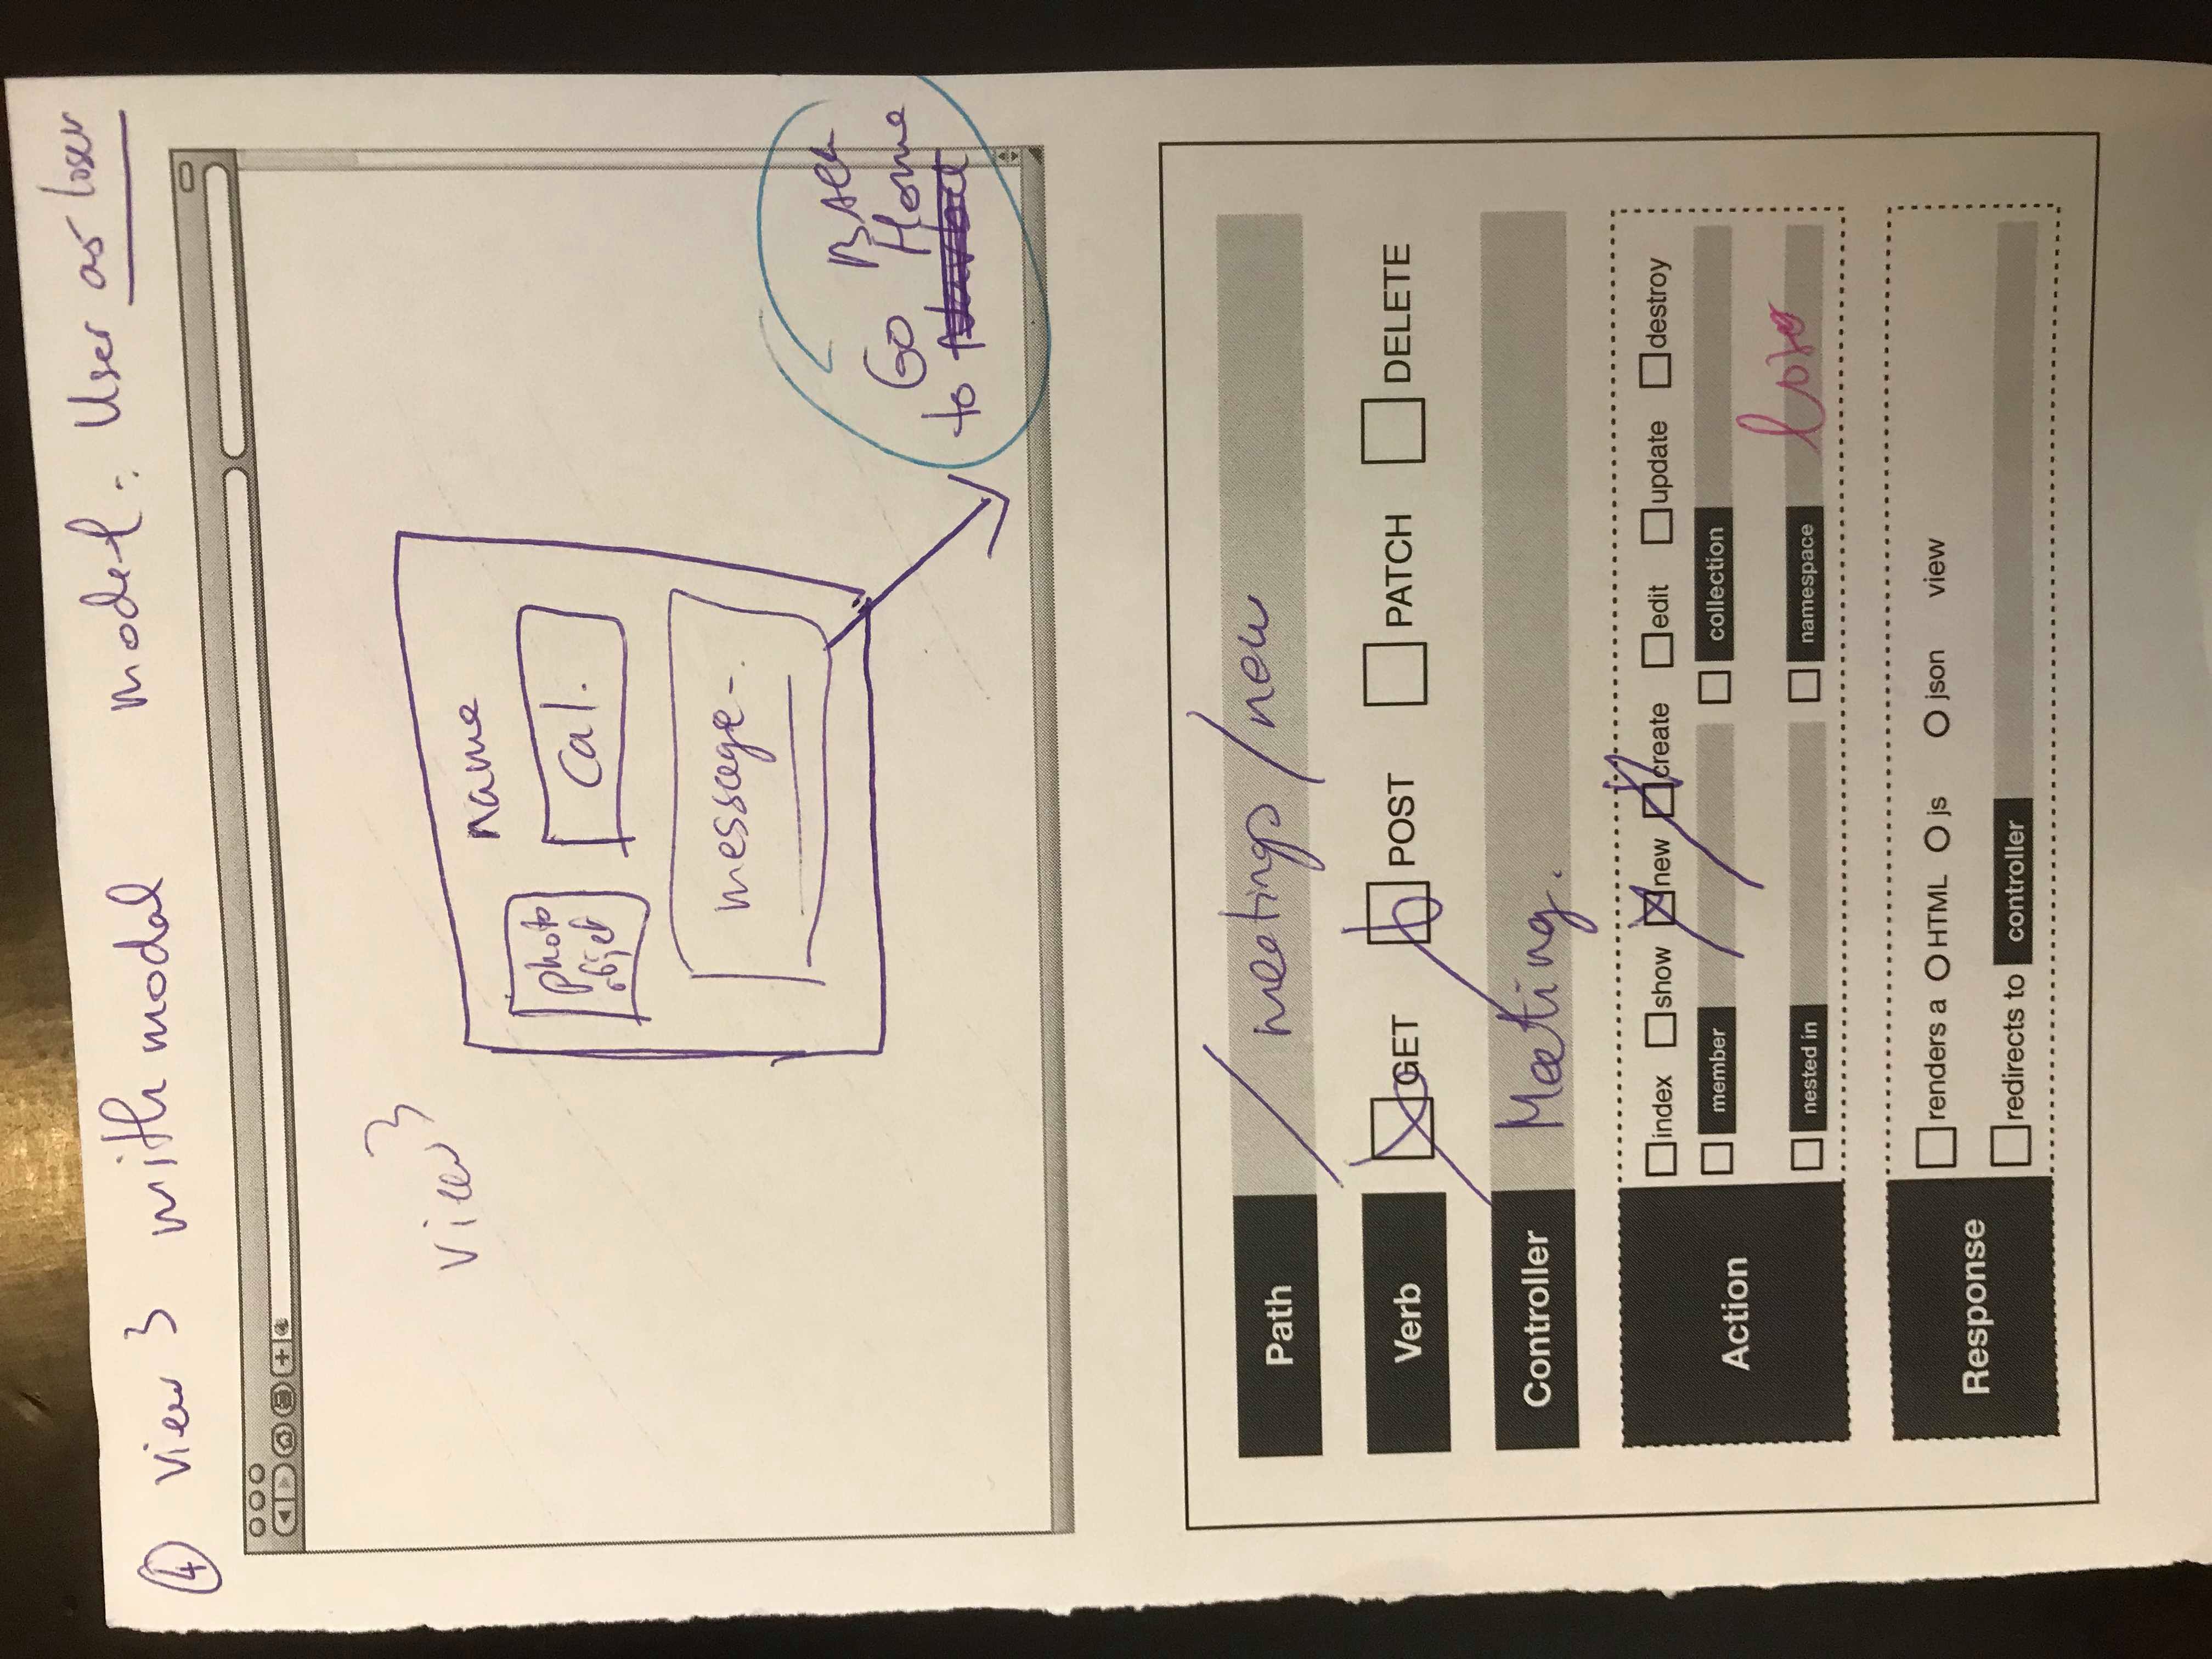 ④ view 3 with modal model : User as loser
view 3
name
photo
cal.
message -.
Go BACK
to Home
Path / meetings / new
Verb GET POST PATCH DELETE
Controller Meeting.
Action index show new create edit update destroy
member collection
nested in namespace loser
Response renders a HTML js json view
redirects to controller